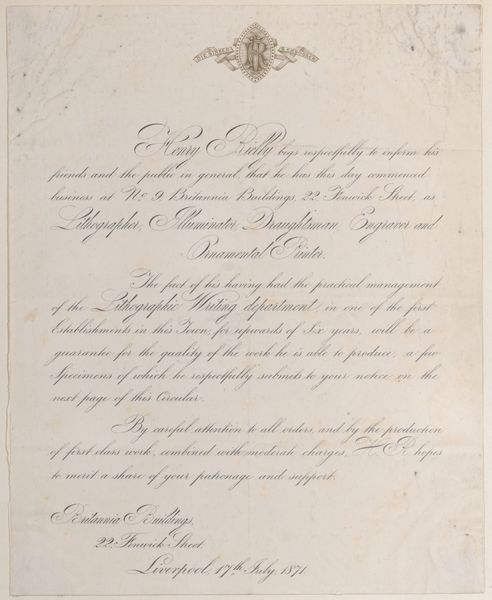 HR
Henry Rielly begs respectfully to inform his
friends and the public in general, that he has this day commenced
business at No. 9, Britannia Buildings, 22, Fenwick Street, as
Lithographer, Illuminator, Draughtsman, Engraver and
Ornamental Printer.
The fact of his having had the practical management
of the Lithographic Writing department, in one of the first
Establishments in this Town, for upwards of Six years, will be a
guarantee for the quality of the work he is able to produce, a few
Specimens of which he respectfully submits to your notice on the
next page of this Circular.
By careful attention to all orders, and by the production
of first class work, combined with moderate charges, H. R. hopes
to merit a share of your patronage and support.
Britannia Buildings,
22, Fenwick Street,
Liverpool, 17th July, 1871.